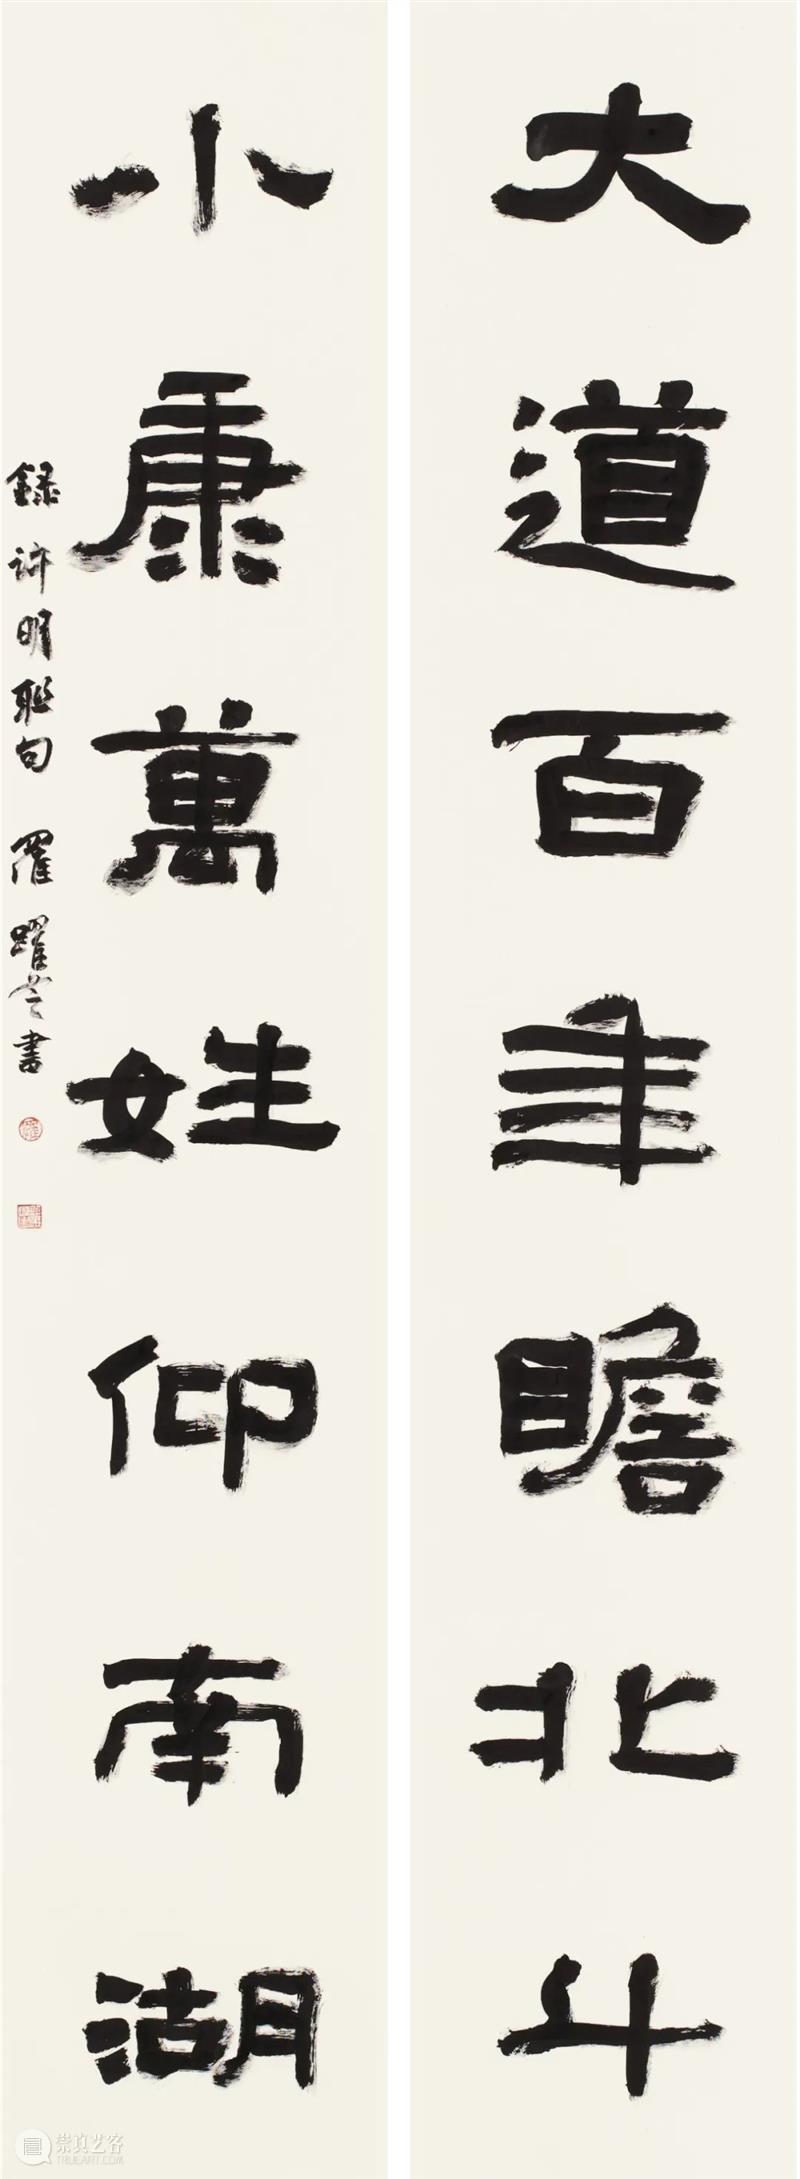 大道百年瞻北斗
小康萬姓仰南湖
録许明联句 羅躍㞢書
崇真艺客
WWW.TRUEART.COM